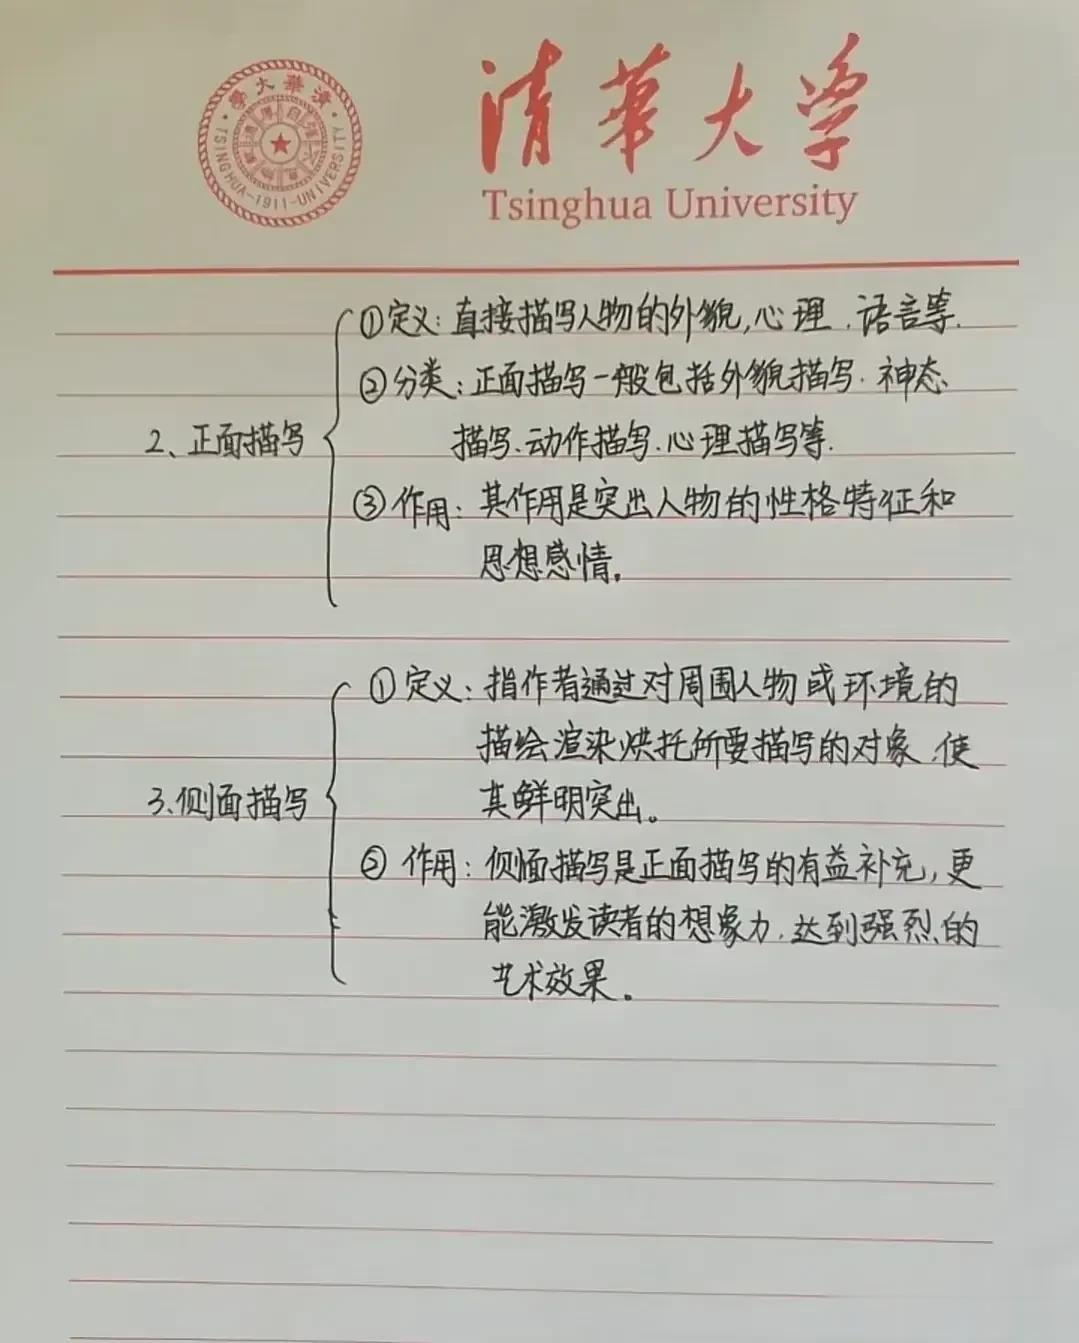 清華大学
Tsinghua University
學大華清
TSINGHUA-1911-UNIVERSITY
①定义：直接描写人物的外貌,心理、语言等.
②分类：正面描写一般包括外貌描写、神态
2、正面描写
描写、动作描写、心理描写等.
③作用：其作用是突出人物的性格特征和
思想感情。
①定义：指作者通过对周围人物或环境的
描绘渲染烘托所要描写的对象、使
3、侧面描写
其鲜明突出。
②作用：侧面描写是正面描写的有益补充，更
能激发读者的想象力、达到强烈的
艺术效果。